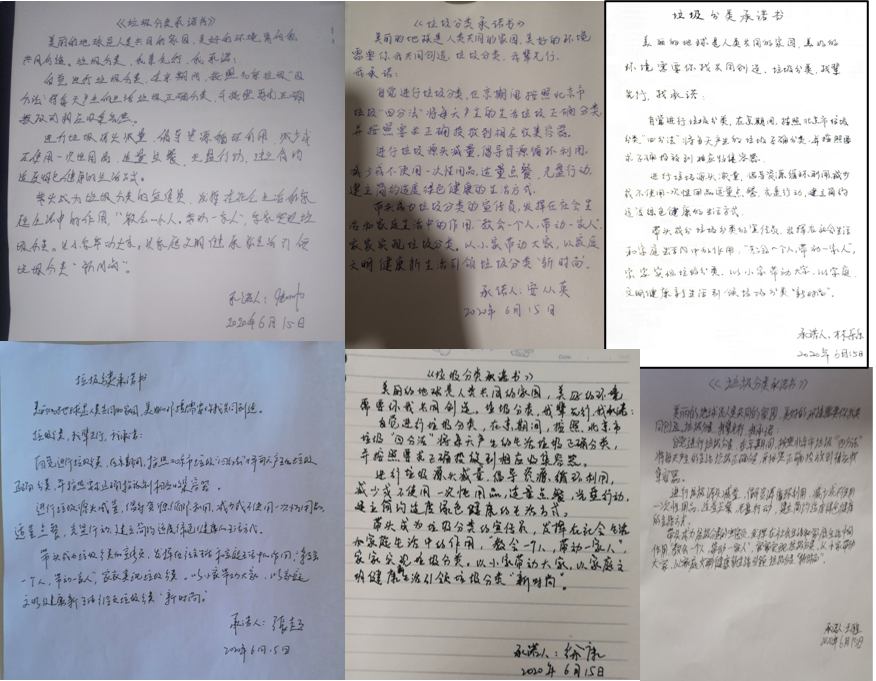 《垃圾分类承诺书》
美丽的地球是人类共同的家园,美好的环境需要你我
共同创造。垃圾分类,我辈先行,我承诺:
自觉进行垃圾分类,在京期间,按照北京市垃圾“四
分法”将每天产生的生活垃圾正确分类,并按照要求正确
投放到相应收集容器。
进行垃圾源头减量,倡导资源循环利用,减少或
不使用一次性用品,适量点餐,光盘行动,建立简约
适度绿色健康的生活方式。
带头成为垃圾分类的宣传员,发挥在社会生活和家
庭生活中的作用,“教会一个人,带动一家人”,家家实现垃
圾分类。以小家带动大家,以家庭文明健康新生活引领
垃圾分类“新时尚”。
承诺人:
2020年6月15日
《垃圾分类承诺书》
美丽的地球是人类共同的家园,美好的环境
需要你我共同创造。垃圾分类,我辈先行。
我承诺:
自觉进行垃圾分类,在京期间,按照北京市
垃圾“四分法”将每天产生的生活垃圾正确分类,
并按照要求正确投放到相应收集容器。
进行垃圾源头减量,倡导资源循环利用,
减少或不使用一次性用品,适量点餐,光盘行动,
建立简约适度绿色健康的生活方式。
带头成为垃圾分类的宣传员,发挥在社会生
活和家庭生活中的作用,教会一个人,带动一家人,
家家实现垃圾分类。以小家带动大家,以家庭
文明健康新生活引领垃圾分类“新时尚”。
承诺人:安从英
2020年6月15日
垃圾分类承诺书
美丽的地球是人类共同的家园,美好的
环境需要你我共同创造。垃圾分类,我辈
先行,我承诺:
自觉进行垃圾分类,在京期间,按照北京市垃圾
分类“四分法”将每天产生的垃圾正确分类,并按照要
求正确投放到相应收集容器。
进行垃圾源头减量,倡导资源循环利用,减少
或不使用一次性用品,适量点餐,光盘行动,建立简约
适度绿色健康的生活方式。
带头成为垃圾分类的宣传员,发挥在社会生活
和家庭生活中的作用,“教会一个人,带动一家人”,
家家实现垃圾分类。以小家带动大家,以家庭
文明健康新生活引领垃圾分类“新时尚”。
承诺人:林乐乐
2020年6月15日
垃圾分类承诺书
美丽的地球是人类共同的家园,美好的环境需要你我共同创造。
垃圾分类,我辈先行,我承诺:
自觉进行垃圾分类,在京期间,按照北京市垃圾“四分法”将每天产生的垃圾
正确分类,并按照要求正确投放到相应收集容器。
进行垃圾源头减量,倡导资源循环利用,减少或不使用一次性用品,
适量点餐,光盘行动,建立简约适度绿色健康的生活方式。
带头成为垃圾分类的宣传员,发挥在社会生活和家庭生活中的作用,“教会
一个人,带动一家人”,家家实现垃圾分类。以小家带动大家,以家庭
文明健康新生活引领垃圾分类“新时尚”。
承诺人:
2020年6月15日
《垃圾分类承诺书》
美丽的地球是人类共同的家园,美好的环境
需要你我共同创造。垃圾分类,我辈先行,我承诺:
自觉进行垃圾分类,在京期间,按照北京市
垃圾“四分法”将每天产生的生活垃圾正确分类,
并按照要求正确投放到相应收集容器。
进行垃圾源头减量,倡导资源循环利用,
减少或不使用一次性用品,适量点餐,光盘行动,
建立简约适度绿色健康的生活方式。
带头成为垃圾分类的宣传员,发挥在社会生活
和家庭生活中的作用,“教会一个人,带动一家人”。
家家实现垃圾分类。以小家带动大家,以家庭文
明健康新生活引领垃圾分类“新时尚”。
承诺人:徐康
2020年6月15日
《垃圾分类承诺书》
美丽的地球是人类共同的家园,美好的环境需要你我共
同创造,垃圾分类,我辈先行,我承诺:
自觉进行垃圾分类,在京期间,按照北京市垃圾“四分法”
将每天产生的生活垃圾正确分类,并按照要求正确投放到相应收
集容器。
进行垃圾源头减量,倡导资源循环利用,减少或不使用
一次性用品,适量点餐,光盘行动,建立简约适度绿色健康
的生活方式。
带头成为垃圾分类的宣传员,发挥在社会生活和家庭生活中的
作用,“教会一个人,带动一家人”,家家实现垃圾分类,以小家带动
大家,以家庭文明健康新生活引领垃圾分类“新时尚”。
承诺人:
2020年6月15日